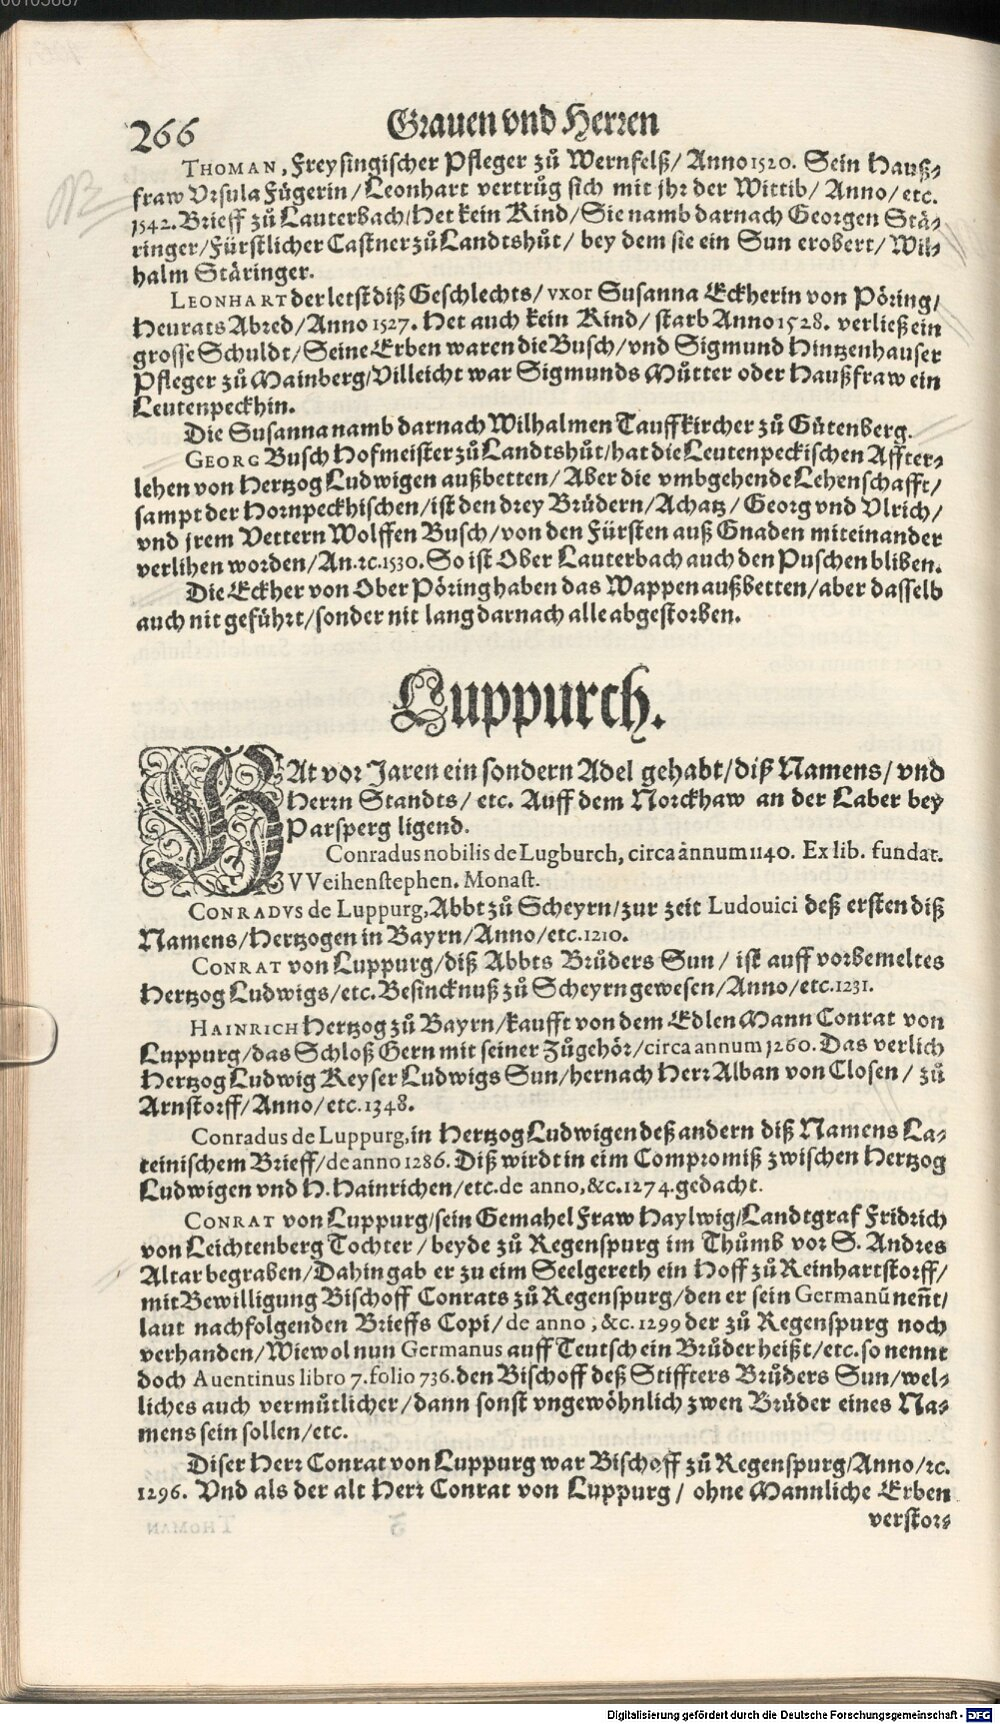 266
Grauen vnd Herren
THOMAN, Freysingischer Pfleger zů Wernfelß/ Anno 1520. Sein Hauß⸗
fraw Vrsula Fügerin/ Leonhart vertrůg sich mit jhr der Wittib/ Anno/ etc.
1542. Brieff zů Lauterbach/ Het kein Kind/ Sie namb darnach Georgen Stä⸗
ringer/ Fürstlicher Castner zů Landtshůt/ bey dem sie ein Sun erobert/ Wil⸗
halm Stäringer.
LEONHART der letst diß Geschlechts/ vxor Susanna Eckherin von Pöring/
Heurats Abred/ Anno 1527. Het auch kein Kind/ starb Anno 1528. verließ ein
grosse Schuldt/ Seine Erben waren die Busch/ vnd Sigmund Hintzenhauser
Pfleger zů Mainberg/ Villeicht war Sigmunds Můtter oder Haußfraw ein
Leutenpeckhin.
Die Susanna namb darnach Wilhalmen Tauffkircher zů Gůtenberg.
GEORG Busch Hofmeister zů Landtshůt/ hat die Leutenpeckischen Affter⸗
lehen von Hertzog Ludwigen außbetten/ Aber die vmbgehende Lehenschafft/
sampt der Hornpeckhischen/ ist den drey Brüdern/ Achatz/ Georg vnd Vlrich/
vnd jrem Vettern Wolffen Busch/ von den Fürsten auß Gnaden miteinander
verlihen worden/ An. ꝛc. 1530. So ist Ober Lauterbach auch den Puschen bliben.
Die Eckher von Ober Pöring haben das Wappen außbetten/ aber dasselb
auch nit geführt/ sonder nit lang darnach alle abgestorben.
Luppurch.
HAt vor Jaren ein sondern Adel gehabt/ diß Namens/ vnd
Herrn Standts/ etc. Auff dem Norckhaw an der Laber bey
Parsperg ligend.
Conradus nobilis de Lugburch, circa annum 1140. Ex lib. fundat.
VVeihenstephen. Monast.
CONRADVS de Luppurg, Abbt zů Scheyrn/ zur zeit Ludouici deß ersten diß
Namens/ Hertzogen in Bayrn/ Anno/ etc. 1210.
CONRAT von Luppurg/ diß Abbts Brůders Sun/ ist auff vorbemeltes
Hertzog Ludwigs/ etc. Besincknuß zů Scheyrn gewesen/ Anno/ etc. 1231.
HAINRICH Hertzog zů Bayrn/ kaufft von dem Edlen Mann Conrat von
Luppurg/ das Schloß Gern mit seiner Zůgehör/ circa annum 1260. Das verlich
Hertzog Ludwig Keyser Ludwigs Sun/ hernach Herr Alban von Closen/ zů
Arnstorff/ Anno/ etc. 1348.
Conradus de Luppurg, in Hertzog Ludwigen deß andern diß Namens La⸗
teinischem Brieff/ de anno 1286. Diß wirdt in eim Compromiß zwischen Hertzog
Ludwigen vnd H. Hainrichen/ etc. de anno, &c. 1274. gedacht.
CONRAT von Luppurg/ sein Gemahel Fraw Haylwig/ Landtgraf Fridrich
von Leichtenberg Tochter/ beyde zů Regenspurg im Thůmb vor S. Andres
Altar begraben/ Dahin gab er zu eim Seelgereth ein Hoff zů Reinhartstorff/
mit Bewilligung Bischoff Conrats zů Regenspurg/ den er sein Germanū neñt/
laut nachfolgenden Brieffs Copi/ de anno, &c. 1299 der zů Regenspurg noch
verhanden/ Wiewol nun Germanus auff Teutsch ein Brůder heißt/ etc. so nennt
doch Auentinus libro 7. folio 736. den Bischoff deß Stiffters Brůders Sun/ wel⸗
liches auch vermůtlicher/ dann sonst vngewöhnlich zwen Brüder eines Na⸗
mens sein sollen/ etc.
Diser Herr Conrat von Luppurg war Bischoff zů Regenspurg/ Anno/ ꝛc.
1296. Vnd als der alt Herr Conrat von Luppurg/ ohne Mannliche Erben
verstor⸗
Digitalisierung gefördert durch die Deutsche Forschungsgemeinschaft - DFG